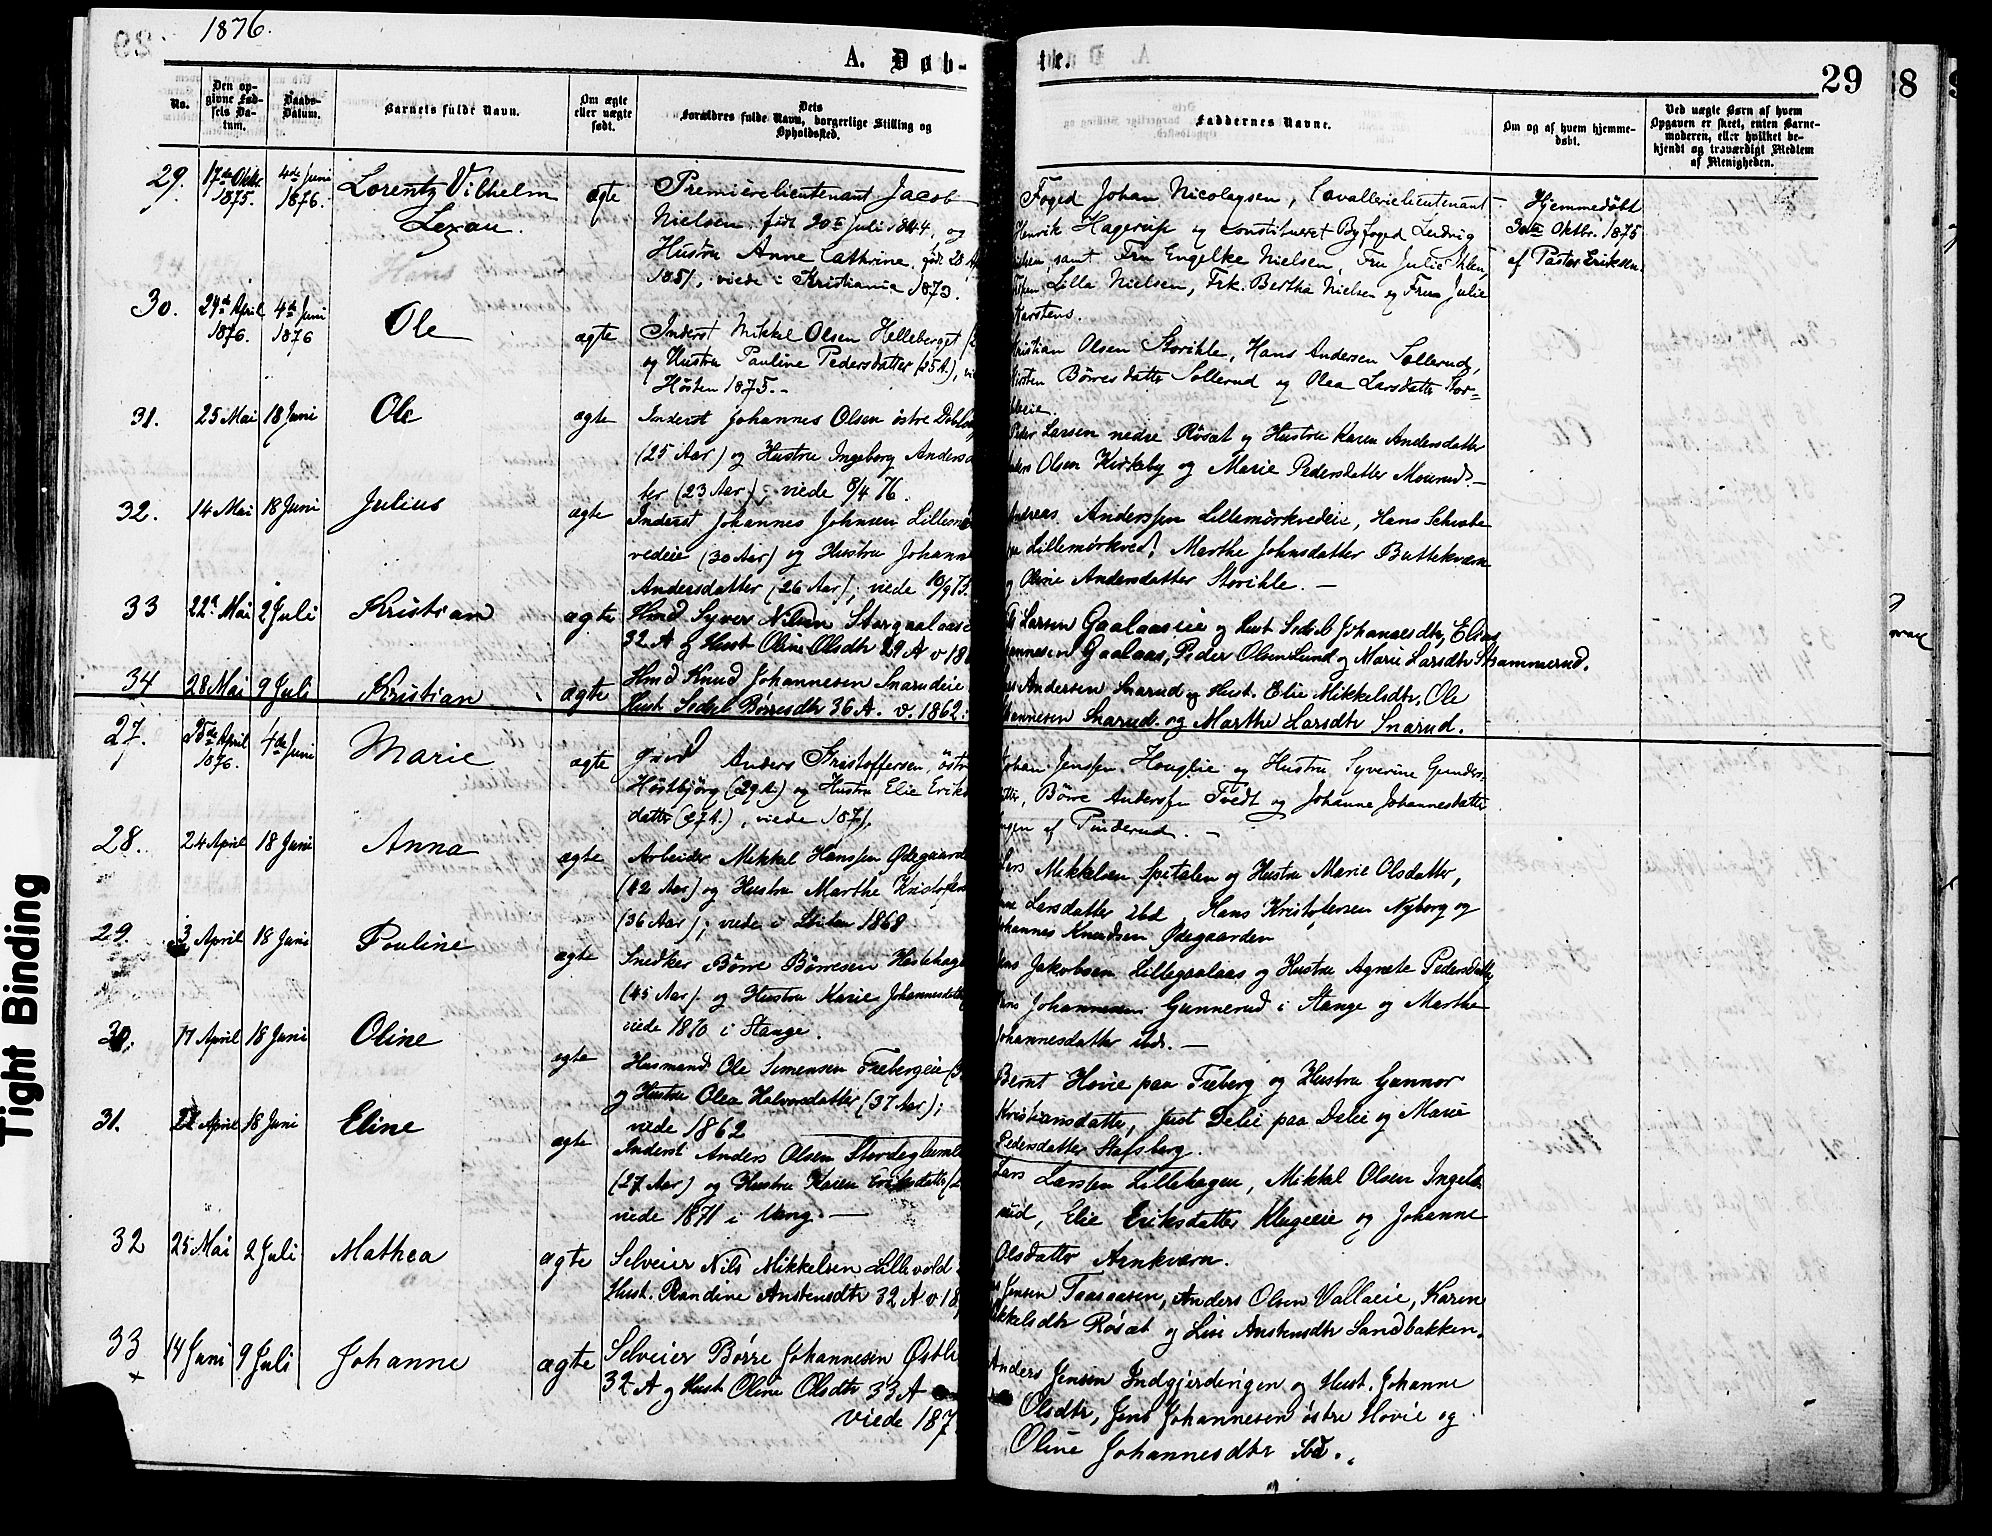 1876.
A. Døb-
te.
29
8
No.
Den op-
givne Fød-
sels Da-
tum.
Daabs-
Datum.
Barnets fulde Navn.
Om ægte
eller uægte
født.
Dets
Forældres fulde Navn, borgerlige Stilling og
Opholdssted.
Faddernes Navne.
Om og af hvem hjemme-
døbt.
Ved uægte Børn af hvem
Opgaven er skeet, enten Barne-
moderen, eller hvilket be-
kjendt og troværdigt Medlem
af Menigheden.
29. 17de Oktbr. 1875. 4de Juni 1876. Lorentz Vilhelm ægte Premierelieutenant Jacob
Nielsen, født 20de Juli 1844, og
Hustru Anne Cathrine, født
1851, viede i Kristiania 1873.
Foged Johan Nicolaysen, Cavallerielieutenant
Henrik Hagerup og constitueret Byfoged Ludvig
samt Fru Engelke Nielsen, Fru Julie
Lilla Nielsen, Frk. Bertha Nielsen og Frue Julie
Karstens.
Hjemmedøbt
Oktbr. 1875
af Pastor Eriksen.
30. April 1876. 4de Juni 1876 Ole ægte Inderst Mikkel Olsen Helleberget
og Hustru Pauline Pedersdatter (25 A.),
Høsten 1875.-
Kristian Olsen Storihle, Hans Andersen Sollerud,
Kirsten Børresdatter Sollerud og Olea Larsdatter Stor-
ihleeie.
31. 25 Mai 18 Juni Ole ægte Inderst Johannes Olsen østre
(25 Aar) og Hustru Ingeborg Andersd
ter (23 Aar); viede 8/4 76.
Peder Larsen nedre Røsæt og Hustru Karen Andersdatter
Anders Olsen Kirkeby og Marie Pedersdatter Mourud.-
32. 14 Mai 18 Juni Julius ægte Inderst Johannes Johnsen
vedeie (30 Aar) og Hustru Johann
Andersdatter (26 Aar); viede
Andreas Anderssen Lillemørkvedeie, Hans
Lillemørkved, Marthe Johnsdatter Buttekværn
og Oline Andersdatter Storihle.-
33 22de Mai 2 Juli Kristian ægte Hmd Syver Nilsen
32 A og Hust Oline Olsdtr 29 A v 18
Larsen Gaalaaseie og Hust Sedsel Johannesdtr, Elias
hannesen Gaalaas, Peder Olsen Lund og Marie Larsdtr Skammerud.
34 28 Mai 9 Juli Kristian ægte Hmd Knud Johannesen Snarudeie
Hust Sedsel Børresdtr 36 A. v. 1862.
Andersen Snarud og Hust. Elie Mikkelsdtr, Ole
hannesen Snarud og Marthe Larsdtr Snarud.
27. 25de April 1876. 4de Juni Marie ægte Anders Kristoffersen, østre
Høstbjørg (29 A.) og Hustru Elie Eriks
datter (27 A.), viede 1871.
Johan Jenssen Houglie og Hustru Syverine Gunders-
datter, Børre Anderssen Tvedt og Johanne Johannesdatter
af Pinderud.-
28. 24 April 18 Juni Anna ægte Arbeider Mikkel Hanssen Ødegaard
(42 Aar) og Hustru Marthe Kristofers
(36 Aar); viede i 1868
Lars Mikkelsen Spitalen og Hustru Marie Olsdatter,
Larsdatter ibd, Hans Kristofersen Nyborg og
Johannes Knudsen Ødegaarden
29. 3 April 18 Juni Pouline ægte Snedker Børre Børresen Hestehag
(45 Aar) og Hustru Karie Johannesdatter
viede 1870 i Stange.
Jakobsen Lillegaalaas og Hustru Agnete Pedersdatter,
Hans Johannesen Gunnerud i Stange og Marthe
Johannesdatter ibd.-
30. 17 April 18 Juni Oline ægte Husmand Ole Simensen Frebergeie
og Hustru Olea Halvorsdatter (37 Aar);
viede 1862
Bernt Hovie paa Freberg og Hustru Gunnor
Kristiansdatter, Just Delie paa Delie og Marie
Pedersdatter Stafsberg.
31. April 18 Juni Eline ægte Inderst Anders Olsen
(27 Aar) og Hustru Karen Eriksdatter
viede 1871 i Vang.-
Lars Larsen Lillehagen, Mikkel Olsen Ingels
rud, Elie Eriksdatter Klugeeie og Johanne
Olsdatter Arnkværn.
32 25 Mai 2 Juli Mathea ægte Selveier Nils Mikkelsen Lillevold
Hust. Randine Anstensdtr 32 A v 18
Jensen Taasaasen, Anders Olsen Vallaeie, Karen
Mikkelsdtr Røsæt og Lise Anstensdtr Sandbakken.
33 14 Juni 9 Juli Johanne ægte Selveier Børre Johannesen
32 A og Hust Oline Olsdtr 33 A
viede 187
Anders Jensen Indgjerdingen og Hust. Johanne
Olsdtr, Jens Johannesen østre Hovie og
Oline Johannesdtr ibd.
Tight Binding